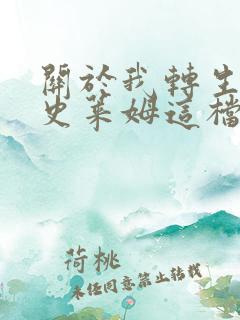 關於我轉生
史萊姆這檔
荷桃
未經同意禁止轉載